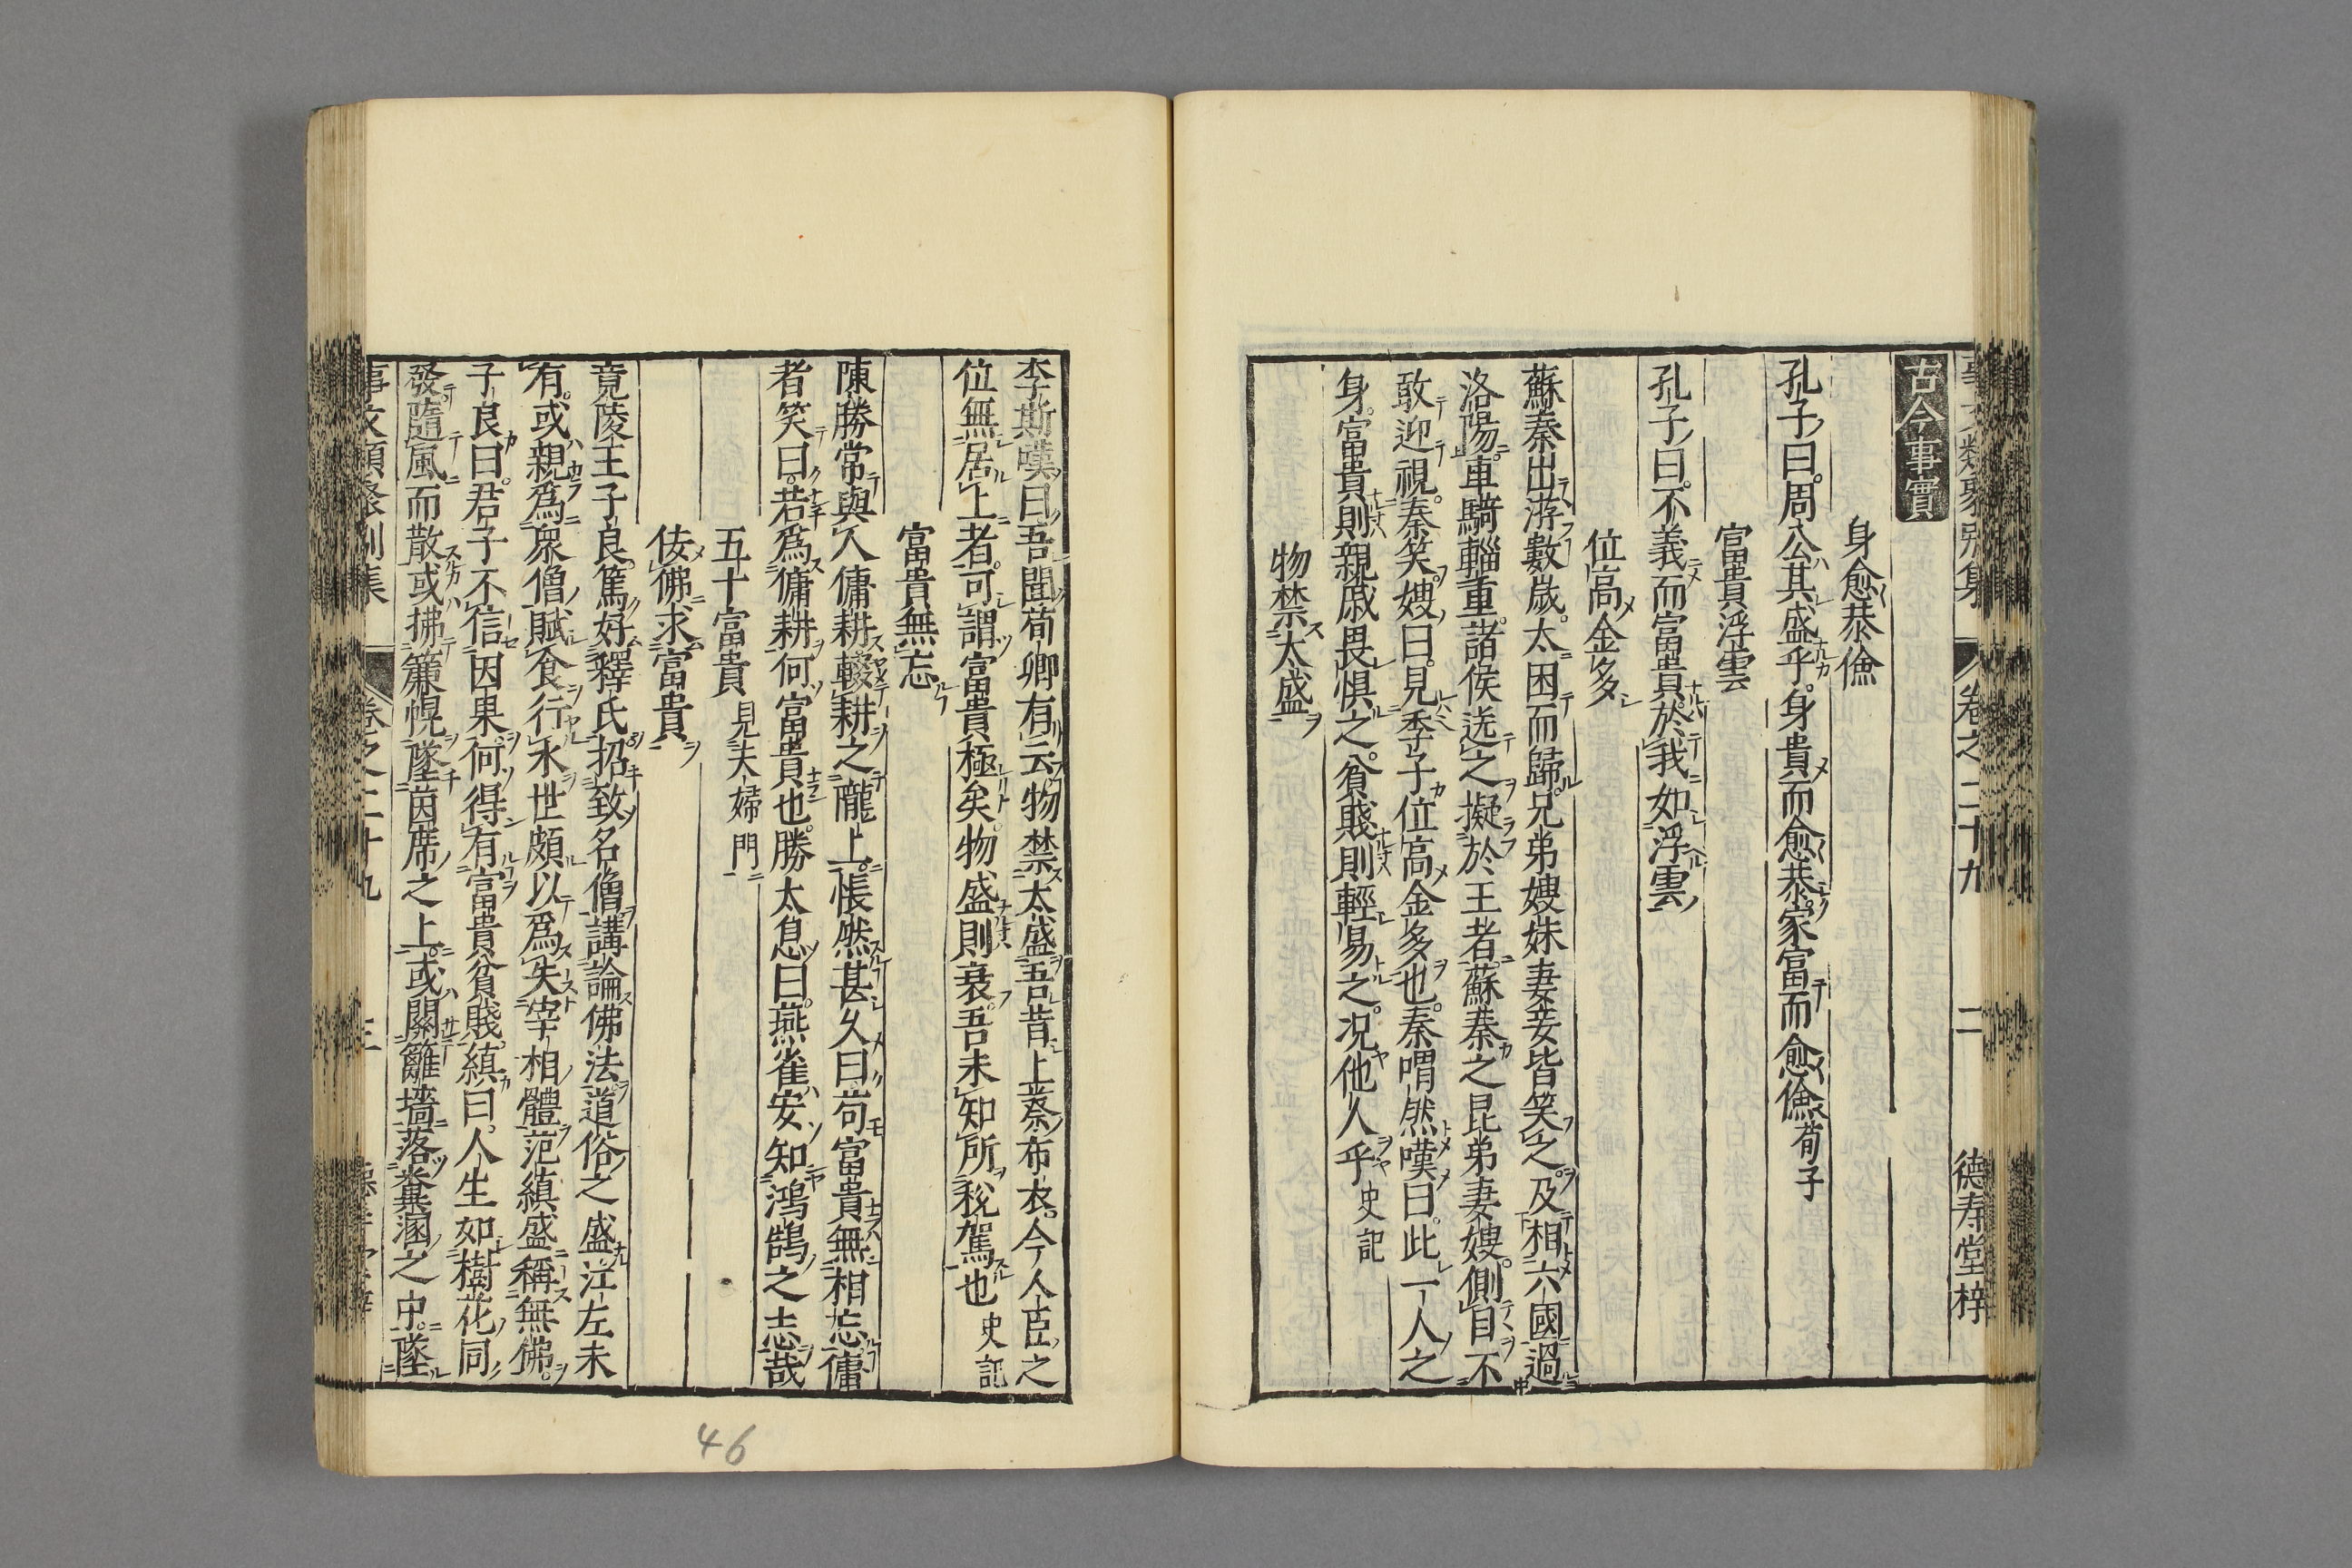 事文類聚別集 卷之二十九 二 德寿堂梓
古今事實
身愈恭儉
孔子曰。周公其盛乎。身貴而愈恭。家富而愈儉 荀子
富貴浮雲
孔子曰。不義而富貴於我如浮雲
位高金多
蘇秦出游數歲。太困而歸。兄弟嫂妹妻妾皆笑之。及相六國過
洛陽。車騎輜重。諸侯送之擬於王者。蘇秦之昆弟妻嫂。側目不
敢迎視。秦笑。嫂曰。見季子位高金多也。秦喟然嘆曰。此一人之
身。富貴則親戚畏惧之。貧賤則輕易之。况他人乎 史記
物禁太盛
李斯嘆曰吾聞荀卿有云物禁太盛吾昔上蔡布衣。今人臣之
位無居上者。可謂富貴極矣。物盛則衰。吾未知所税駕也 史記
富貴無忘
陳勝常與人傭耕輟耕之隴上。悵然甚久曰苟富貴無相忘傭
者笑曰。若爲傭耕何富貴也。勝太息曰。燕雀安知鴻鵠之志哉
五十富貴 見夫婦門
佞佛求富貴
竟陵王子良。篤好釋氏招致名僧講論佛法道俗之盛江左未
有。或親爲衆僧賦食行水世頗以爲失宰相體范縝盛稱無佛。
子良曰。君子不信因果。何得有富貴貧賤。縝曰。人生如樹花同
發隨風而散或拂簾幌墜茵席之上。或關籬墻落糞溷之中。墜
事文類聚別集 卷之二十九 三
46